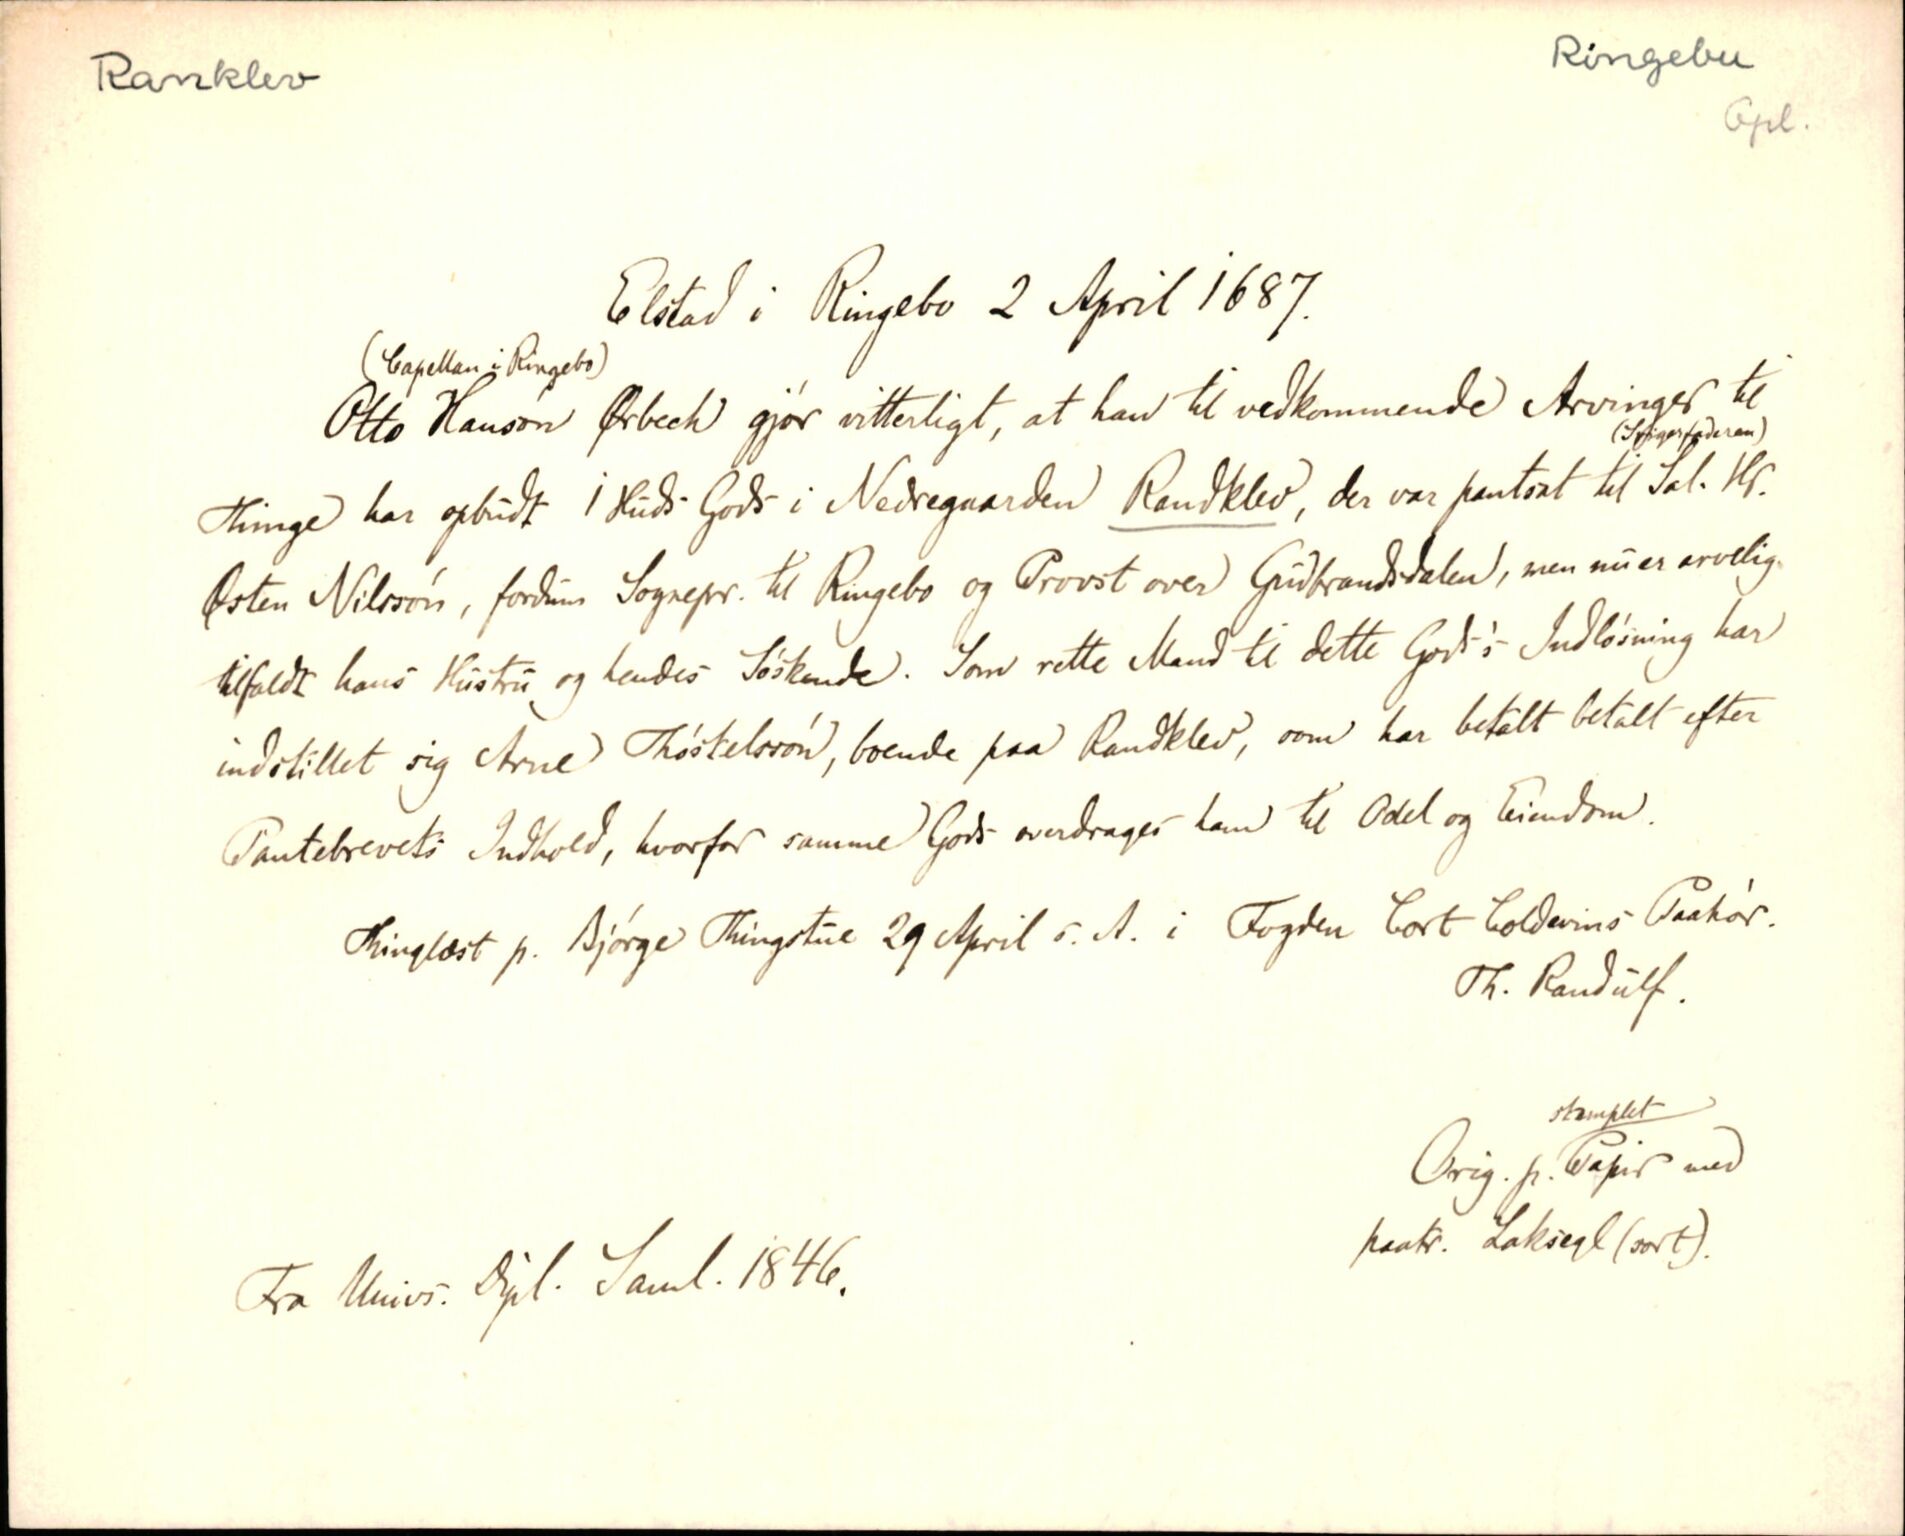 Ranklev
Ringebu
Opl.
Elstad i Ringebo 2 April 1687.
(Capellan i Ringebo)
Otto Hansøn Ørbech gjør vitterligt, at han til vedkommende Arvinger til
(Svigerfaderen)
Thinge har opbudt 1 Huds Gods i Nedregaarden Randklev, der var pantsat til Sal. Hr.
Østen Nilssøn, fordum Sognepr. til Ringebo og Provst over Gudbrandsdalen, men nu er arvelig
tilfaldt hans Hustru og hendes Søskende. Som rette Mand til dette Gods's Indløsning har
indstillet sig Arne Thóstelssøn, boende paa Randklev, som har betalt betalt efter
Pantebrevets Indhold, hvorfor samme Gods overdrages ham til Odel og Eiendom.
Thinglæst p. Bjørge Thingstue 29 April s. A. i Fogden Cort Coldevins Paahør.
Th. Randulf.
stemplet
Orig. p. Papir med
paatr. Laksegl (sort).
Fra Univs. Dipl. Saml. 1846.